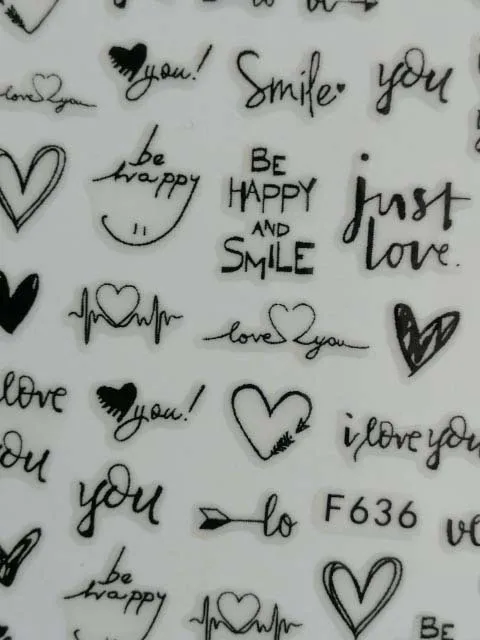 you!
Smile
you
love you
be
happy
BE
HAPPY
AND
SMILE
just
love.
love you
love
you!
i love you
you
lo
F636
be
happy
BE